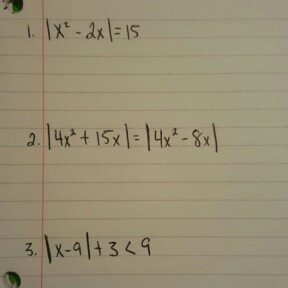 1. |x² - 2x| = 15
2. |4x² + 15x| = |4x² - 8x|
3. |x-9| + 3 < 9